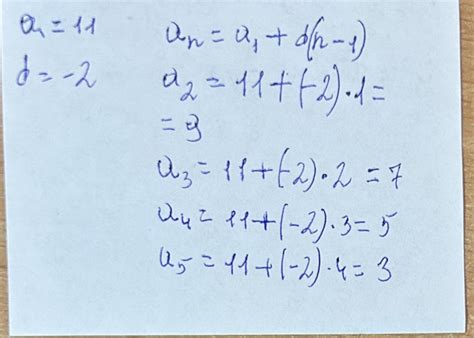 a₁ = 11
d = -2
aₙ = a₁ + d(n-1)
a₂ = 11 + (-2) · 1 =
= 9
a₃ = 11 + (-2) · 2 = 7
a₄ = 11 + (-2) · 3 = 5
a₅ = 11 + (-2) · 4 = 3